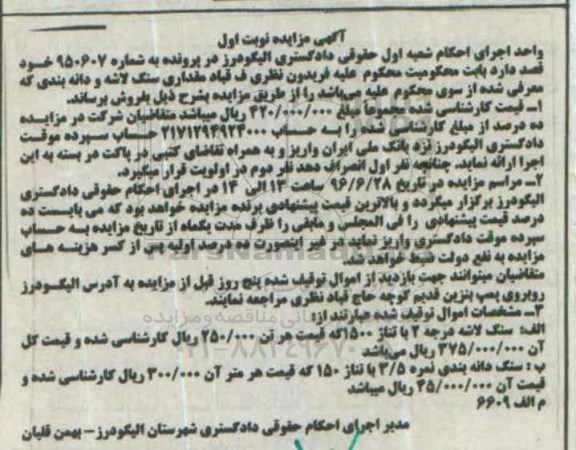 آگهی مزایده نوبت اول
واحد اجرای احکام شعبه اول حقوقی دادگستری الیگودرز در پرونده به شماره ۹۵۰۶۰۷ خود
قصد دارد بابت محکومیت محکوم علیه فریدون نظری ف قباد مقداری سنگ لاشه و دانه بندی که
معرفی شده از سوی محکوم علیه می‌باشد را از طریق مزایده بشرح ذیل بفروش برساند.
۱ـ قیمت کارشناسی شده مجموعا مبلغ ۴۲۰/۰۰۰/۰۰۰ ریال میباشد متقاضیان شرکت در مزایده
ده درصد از مبلغ کارشناسی شده را به حساب ۲۱۷۱۲۹۴۹۲۴۰۰۰ حساب سپرده موقت
دادگستری الیگودرز نزد بانک ملی ایران واریز و به همراه تقاضای کتبی در پاکت در بسته به این
اجرا ارائه نماید. چنانچه نفر اول انصراف دهد نفر دوم در اولویت قرار میگیرد.
۲ـ مراسم مزایده در تاریخ ۹۶/۶/۲۸ ساعت ۱۳ الی ۱۴ در اجرای احکام حقوقی دادگستری
الیگودرز برگزار میگردد و بالاترین قیمت پیشنهادی برنده مزایده خواهد بود که می بایست ده
درصد قیمت پیشنهادی را فی المجلس و مابقی را ظرف مدت یکماه از تاریخ مزایده به حساب
سپرده موقت دادگستری واریز نماید در غیر اینصورت ده درصد اولیه پس از کسر هزینه های
مزایده به نفع دولت ضبط خواهد شد.
متقاضیان میتوانند جهت بازدید از اموال توقیف شده پنج روز قبل از مزایده به آدرس الیگودرز
روبروی پمپ بنزین قدیم کوچه حاج قباد نظری مراجعه نمایند.
۳ـ مشخصات اموال توقیف شده عبارتند از:
الف: سنگ لاشه درجه ۲ با تناژ ۱۵۰۰ که قیمت هر تن ۲۵۰/۰۰۰ ریال کارشناسی شده و قیمت کل
آن ۳۷۵/۰۰۰/۰۰۰ ریال می‌باشد
ب: سنگ دانه بندی نمره ۳/۵ با تناژ ۱۵۰ که قیمت هر متر آن ۳۰۰/۰۰۰ ریال کارشناسی شده و
قیمت آن ۴۵/۰۰۰/۰۰۰ ریال میباشد
م الف ۶۶۰۹
مدیر اجرای احکام حقوقی دادگستری شهرستان الیگودرز – بهمن قلیان